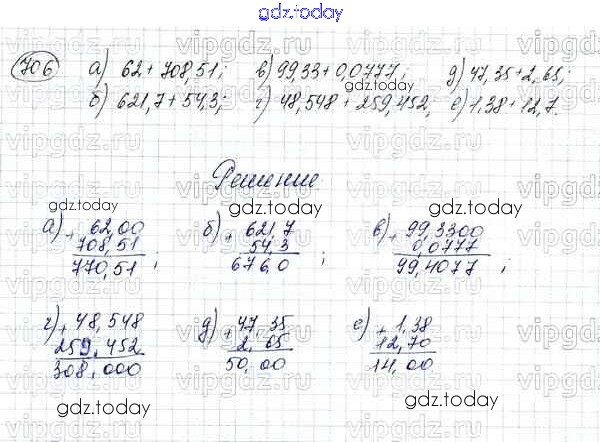 gdz.today
706 а) 62 + 708,51; в) 99,33 + 0,0777; д) 47,35 + 2,65;
б) 621,7 + 54,3; г) 48,548 + 259,452; е) 1,38 + 12,7.
gdz.today
Решение
gdz.today gdz.today
а) + 62,00 б) + 621,7 в) + 99,3300
708,51 54,3 0,0777
770,51 ; 676,0 ; 99,4077 ;
г) + 48,548 д) + 47,35 е) + 1,38
259,452 2,65 12,70
308,000 50,00 14,00
gdz.today gdz.today
gdz.today
vipgdz.com